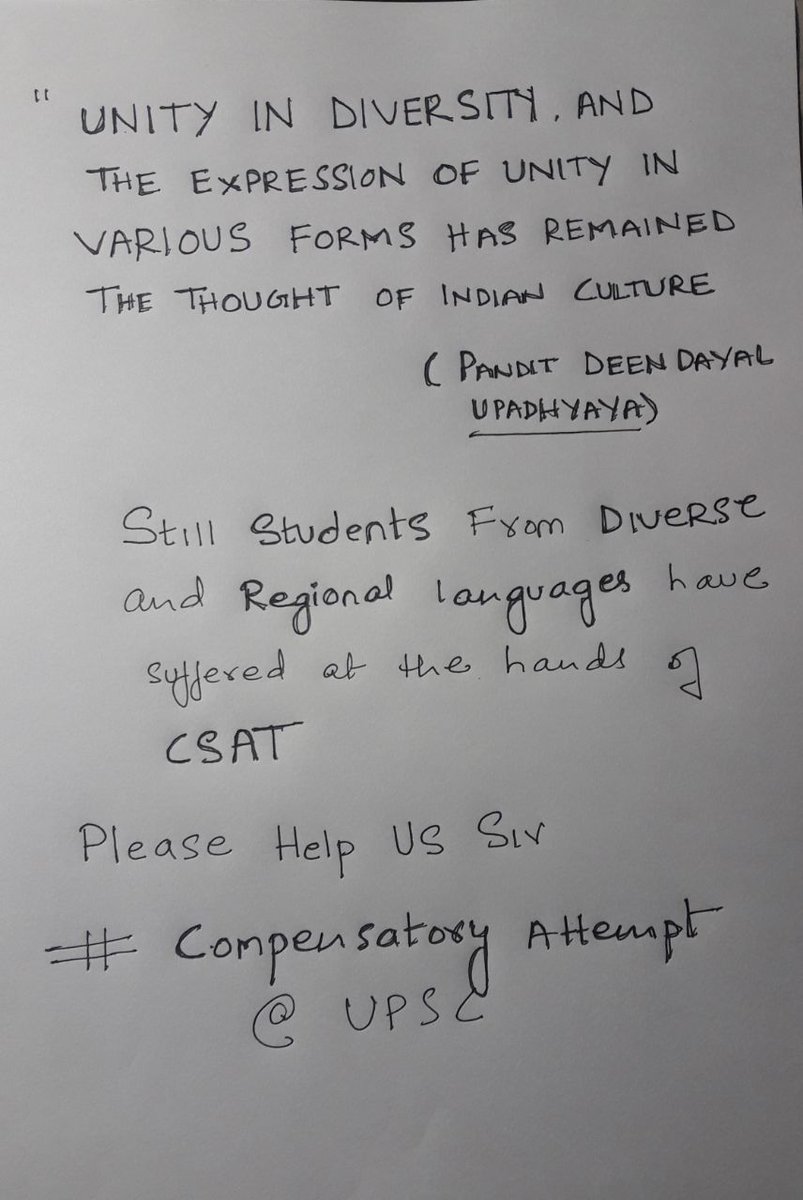 " UNITY IN DIVERSITY, AND
THE EXPRESSION OF UNITY IN
VARIOUS FORMS HAS REMAINED
THE THOUGHT OF INDIAN CULTURE
( PANDIT DEEN DAYAL
UPADHYAYA)
Still Students From Diverse
and Regional languages have
suffered at the hands of
CSAT
Please Help US Sir
# Compensatory Attempt
@ UPSC